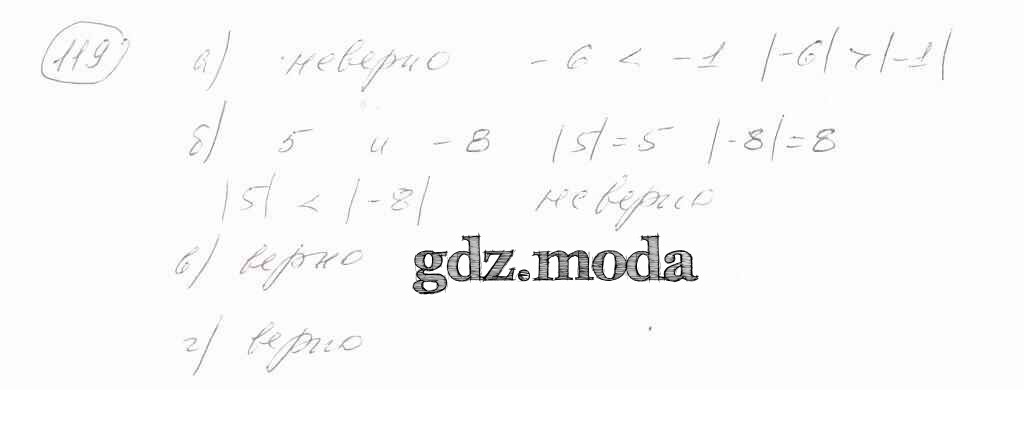 119
а) неверно -6 < -1 |-6| > |-1|
б) 5 и -8 |5| = 5 |-8| = 8
|5| < |-8| неверно
в) верно
gdz.moda
г) верно